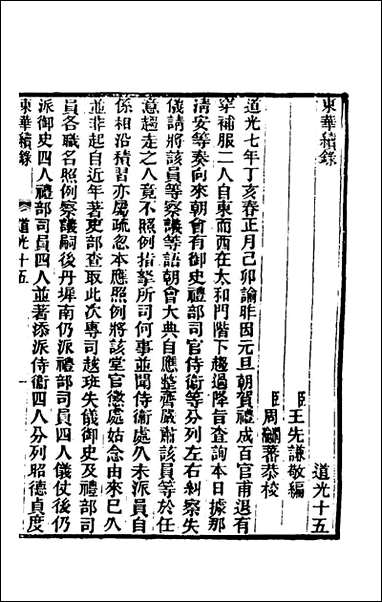 東華續錄
道光十五
臣王先謙敬編
臣周蕃恭校
道光七年丁亥春正月己卯諭昨因元旦朝賀禮成百官甫退有
穿補服二人自東而西在太和門階下趨過降旨查詢本日據那
清安等奏向來朝會有御史禮部司官侍衛等分列左右糾察失
儀請將該員等察議等語朝會大典自應整齊嚴肅該員等於任
意趨走之人竟不照例指拏所司何事並聞侍衛處久未派員自
係相沿積習亦屬疏忽本應照例將該堂官懲處姑念由來已久
並非起自近年著吏部查取此次專司越班失儀御史及禮部司
員各職名照例察議嗣後丹墀南仍派禮部司員四人儀仗後仍
派御史四人禮部司員四人並著添派侍衛四人分列昭德貞度
東華續錄
道光十五
一